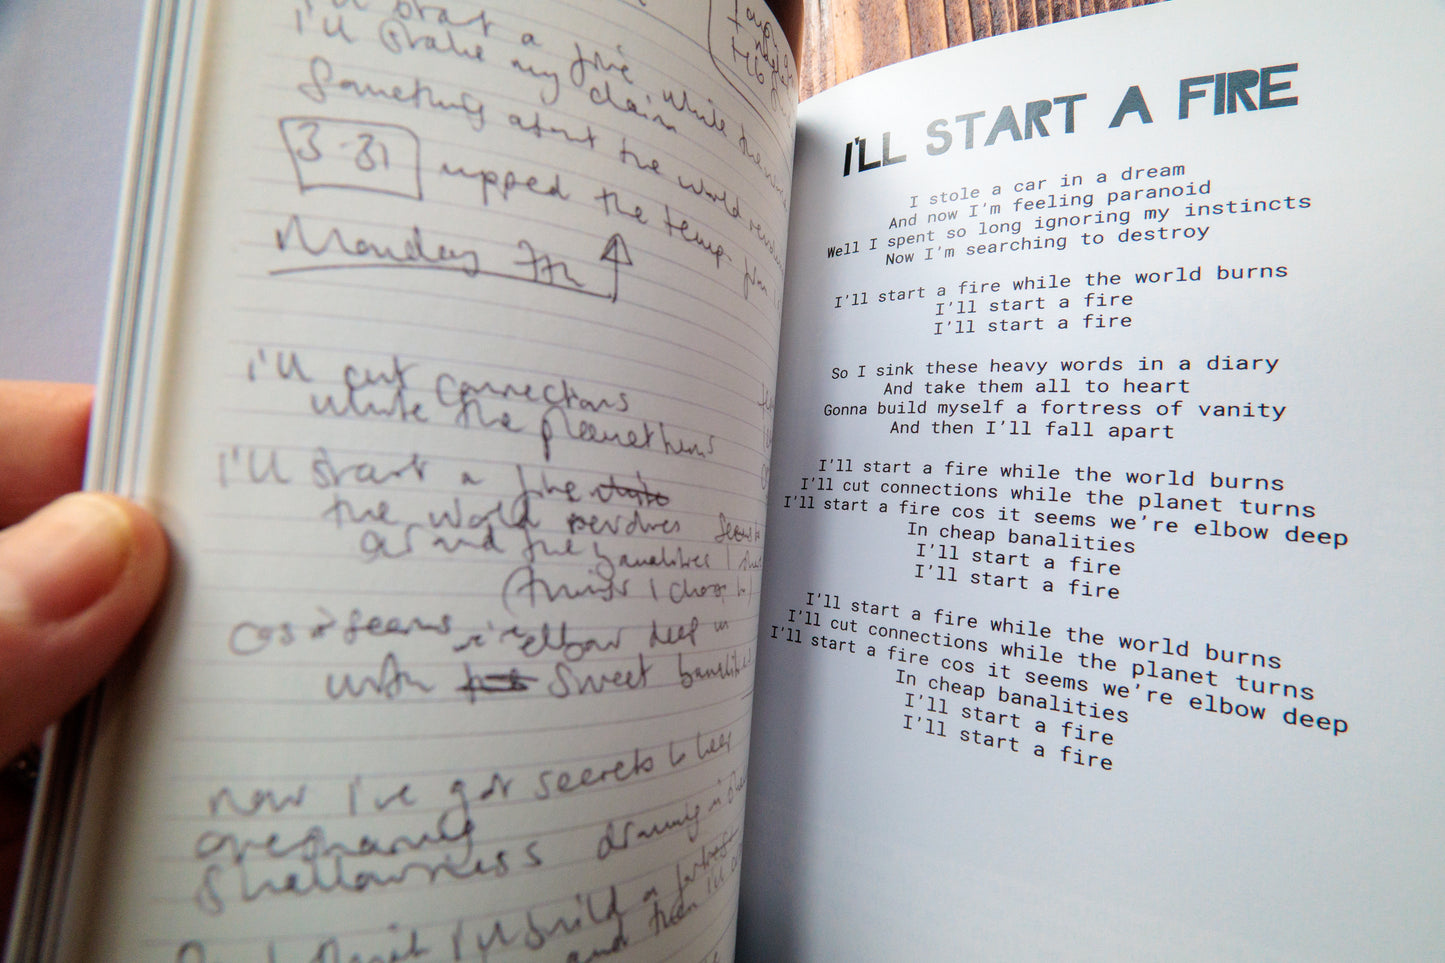 I'll start a fire while the
I'll stake my claim
Something about the world
3.31 upped the temp.
Monday 7th
i'll cut connections
while the planet turns
i'll start a fire while
the world revolves seems
around the banalities I
(things I choose
cos it seems we're elbow deep in
with sweet banalities
now i've got secrets to
shallowness drowning in
I'll build a
and then I'll
I'LL START A FIRE
I stole a car in a dream
And now I'm feeling paranoid
Well I spent so long ignoring my instincts
Now I'm searching to destroy
I'll start a fire while the world burns
I'll start a fire
I'll start a fire
So I sink these heavy words in a diary
And take them all to heart
Gonna build myself a fortress of vanity
And then I'll fall apart
I'll start a fire while the world burns
I'll cut connections while the planet turns
I'll start a fire cos it seems we're elbow deep
In cheap banalities
I'll start a fire
I'll start a fire
I'll start a fire while the world burns
I'll cut connections while the planet turns
I'll start a fire cos it seems we're elbow deep
In cheap banalities
I'll start a fire
I'll start a fire